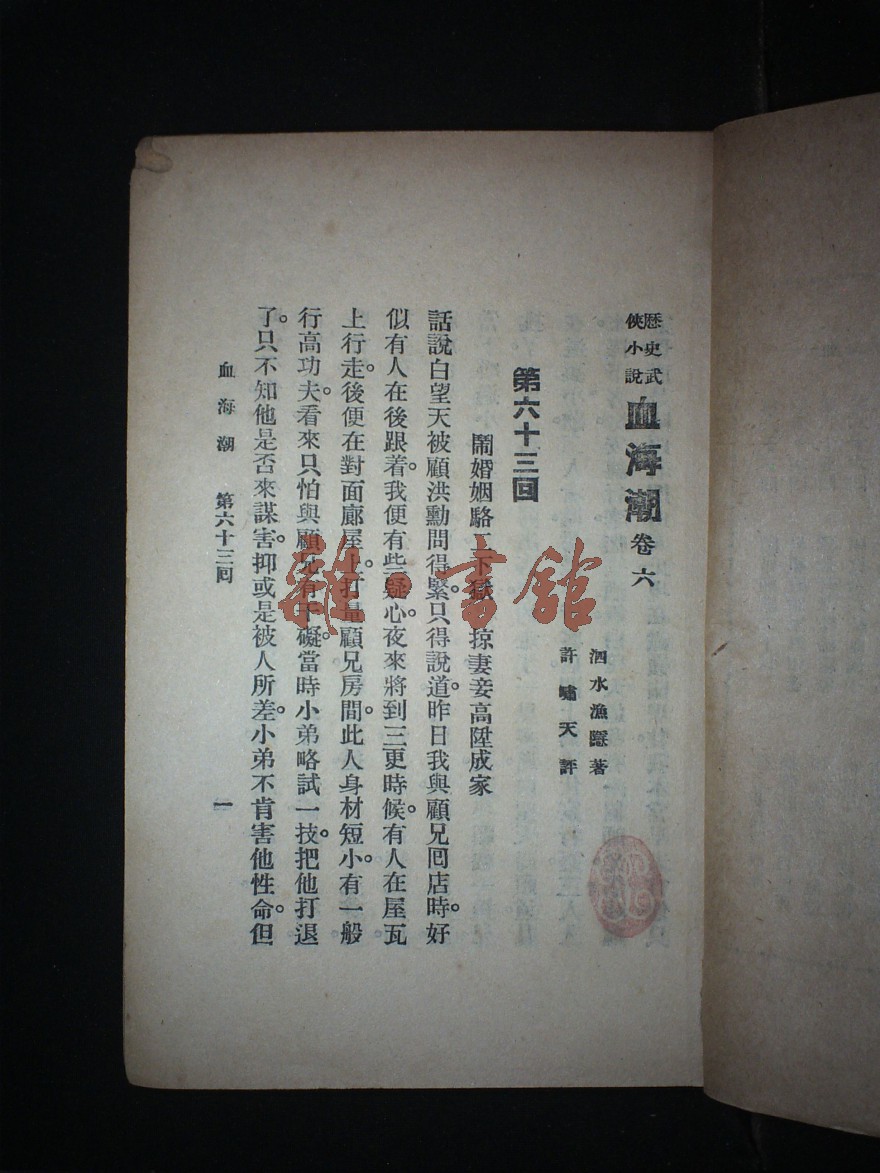 歷史武
俠小說
血海潮 卷六
泗水漁隱著
許嘯天評
第六十三回
鬧婚姻駱 下獄 掠妻妾高陞成家
話說白望天被顧洪勳問得緊。只得說道。昨日我與顧兄囘店時。好
似有人在後跟着。我便有些疑心。夜來將到三更時候。有人在屋瓦
上行走。後便在對面廊屋上。打量顧兄房間。此人身材短小。有一般
行高功夫。看來只怕與顧兄有干礙。當時小弟略試一技。把他打退
了。只不知他是否來謀害。抑或是被人所差。小弟不肯害他性命。但
血海潮 第六十三囘
一
雜·書館